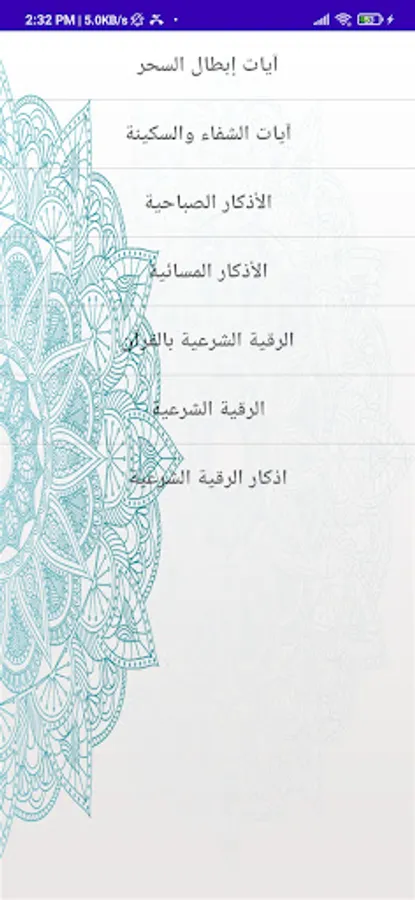 2:32 PM | 5.0KB/s
آيات إبطال السحر
آيات الشفاء والسكينة
الأذكار الصباحية
الأذكار المسائية
الرقية الشرعية بالقران
الرقية الشرعية
اذكار الرقية الشرعية